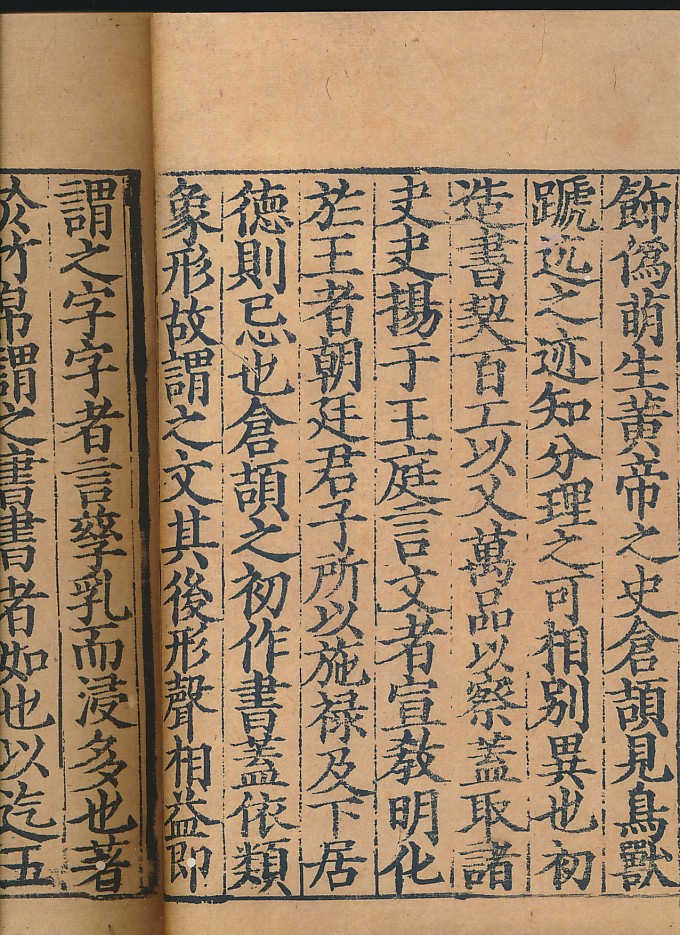 飾僞萌生黄帝之史倉頡見鳥獸
蹏迒之迹知分理之可相別異也初
造書契百工以乂萬品以察蓋取諸
夬夬揚于王庭言文者宣敎明化
於王者朝廷君子所以施禄及下居
德則忌也倉頡之初作書蓋依類
象形故謂之文其後形聲相益即
謂之字字者言孳乳而浸多也著
於竹帛謂之書書者如也以迄五